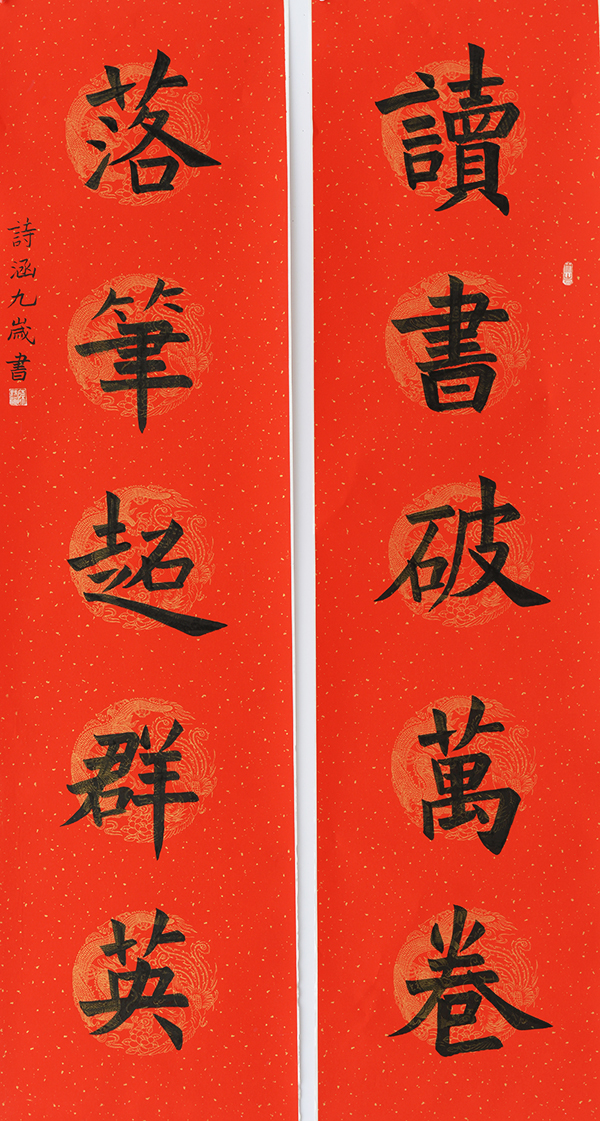 讀書破萬卷
落筆超群英
詩涵九歲書